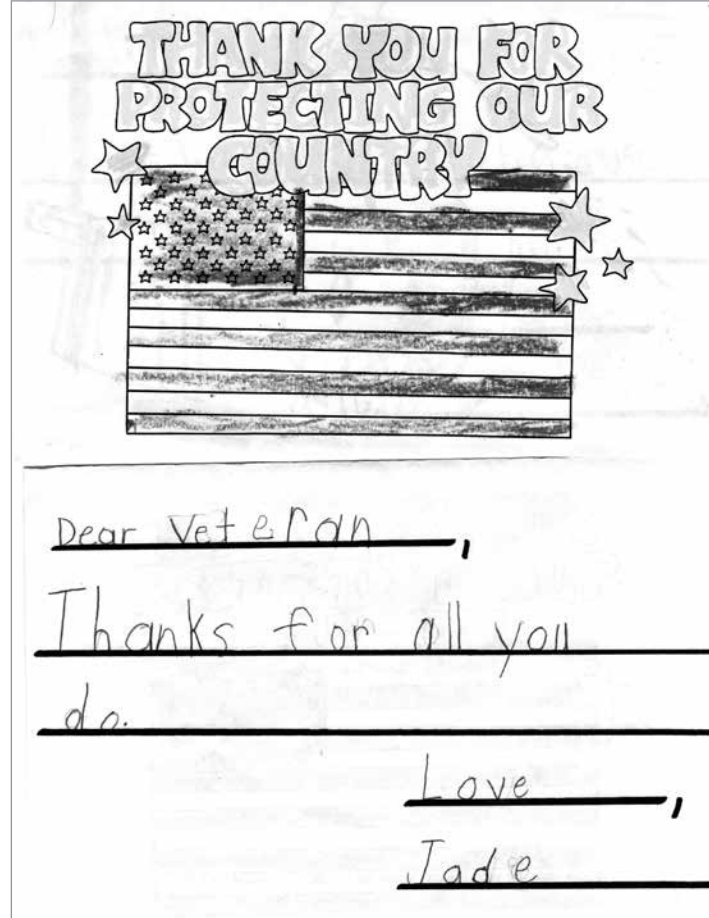 THANK YOU FOR
PROTECTING OUR
COUNTRY
Dear Veteran,
Thanks for all you
do.
Love,
Jade